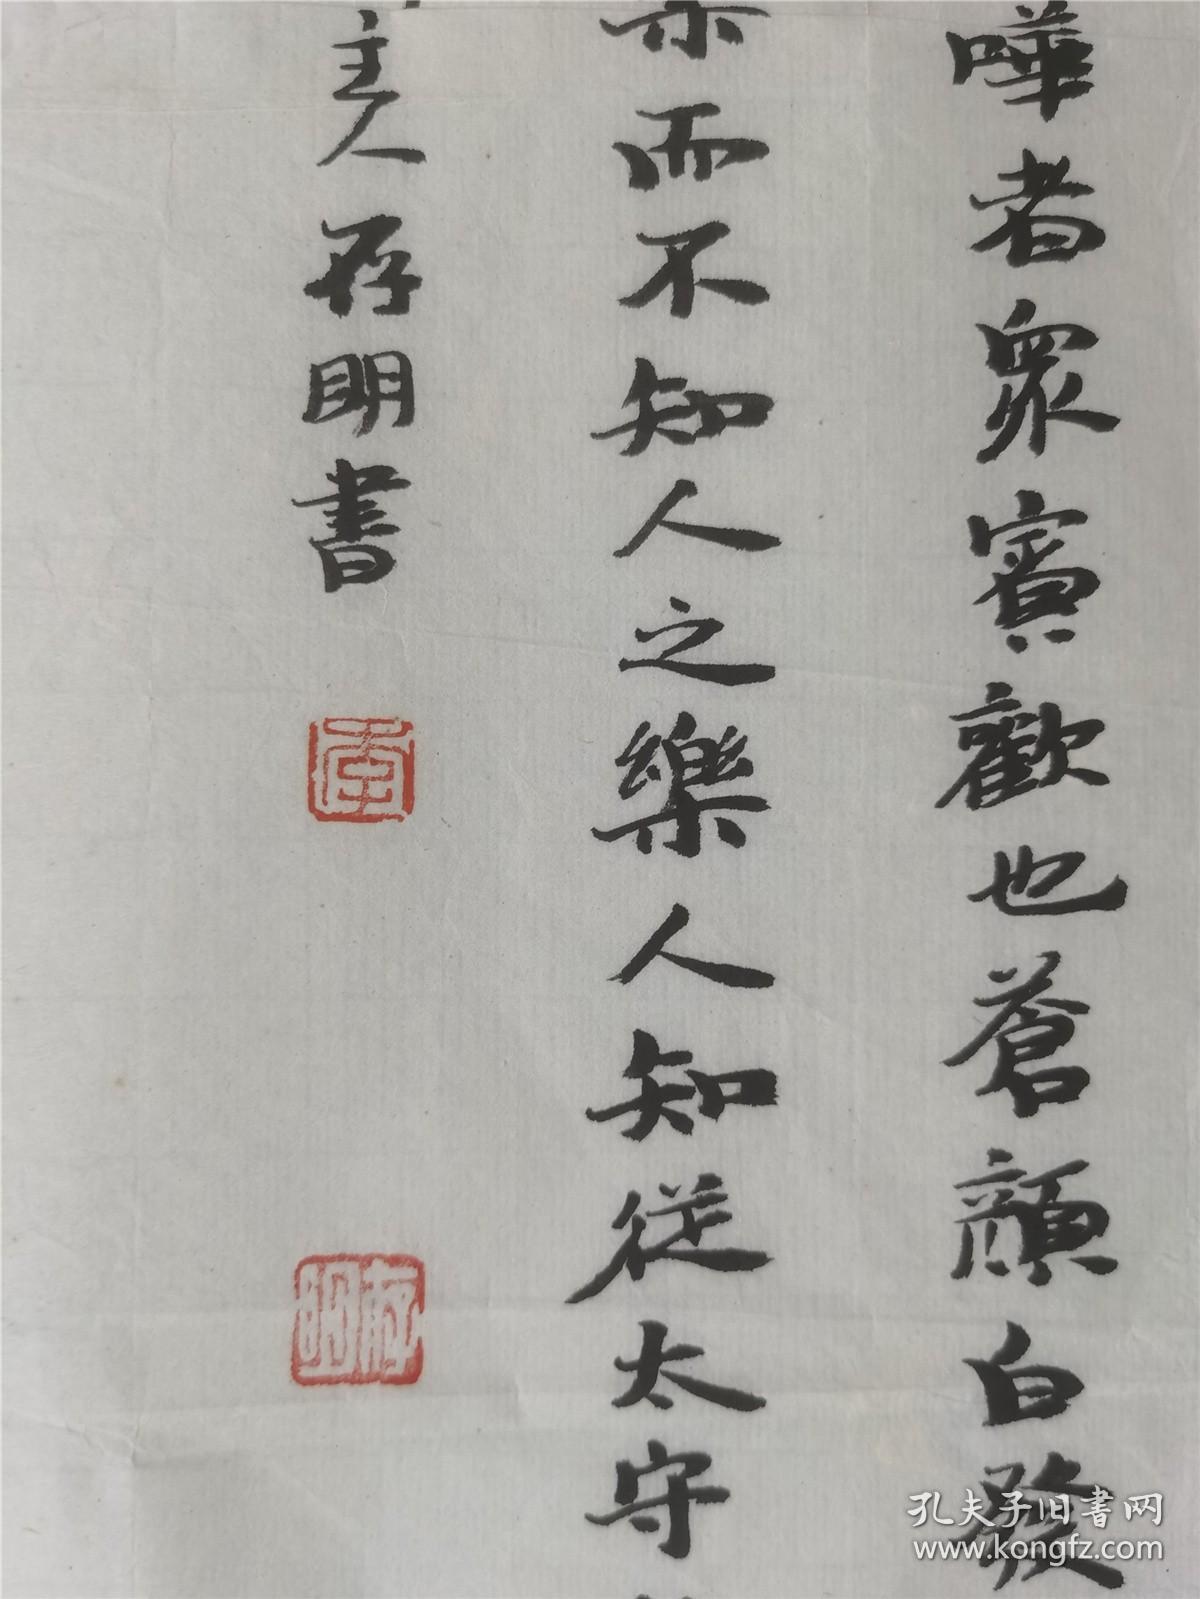 嘩者衆賓歡也蒼顔白發
而不知人之樂人知從太守
主人存明書
李
存明
孔夫子旧书网
www.kongfz.com